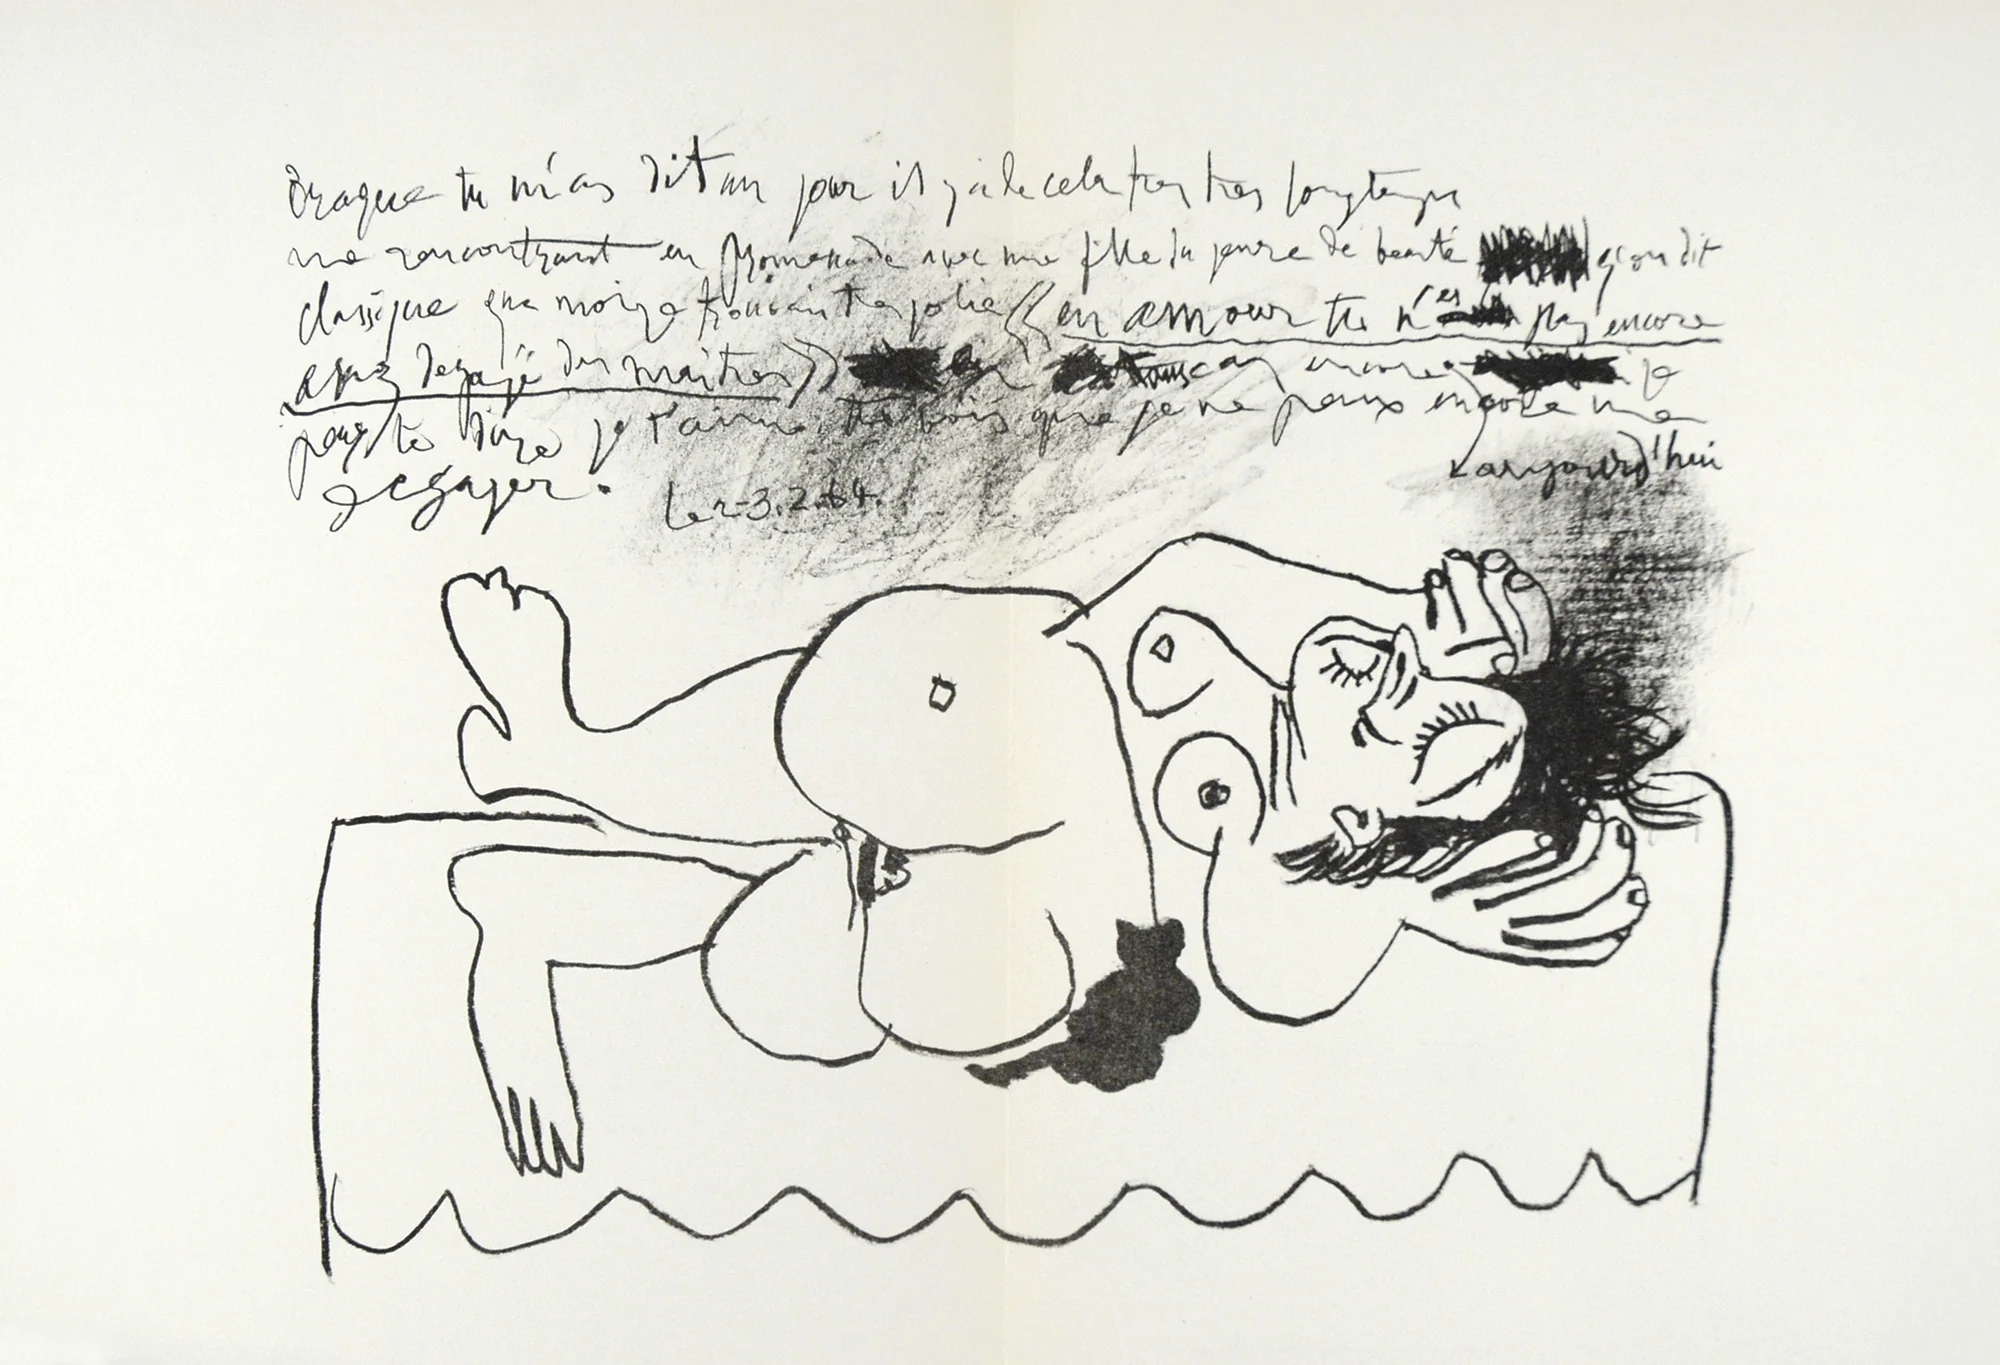 Braque tu m'as dit un jour il y a de cela tres tres longtemps
me rencontrant en promenade avec une fille du genre de beauté qu'on dit
classique que moi je trouvais tres jolie « en amour tu n'es pas encore
assez degagé des maitres » encore je
peux te dire je t'aime tu vois que je ne peux encore me
aujourd'hui
degager.
Le 2-3.2.64.